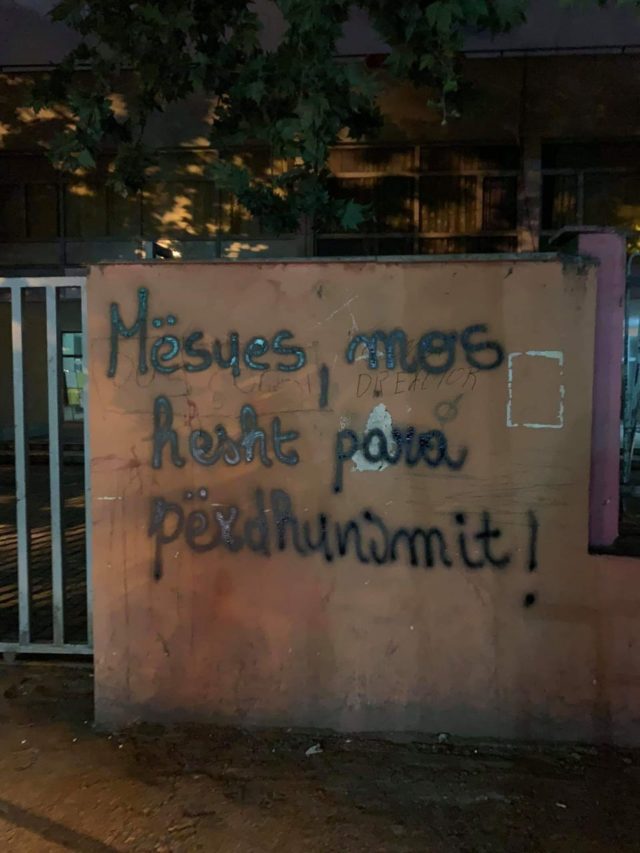 Mësues, mos
hesht para
përdhunimit!